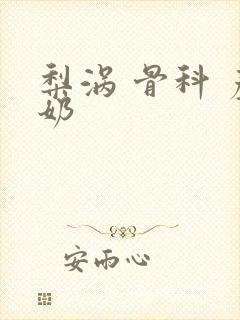 梨涡 骨科
奶
安雨心